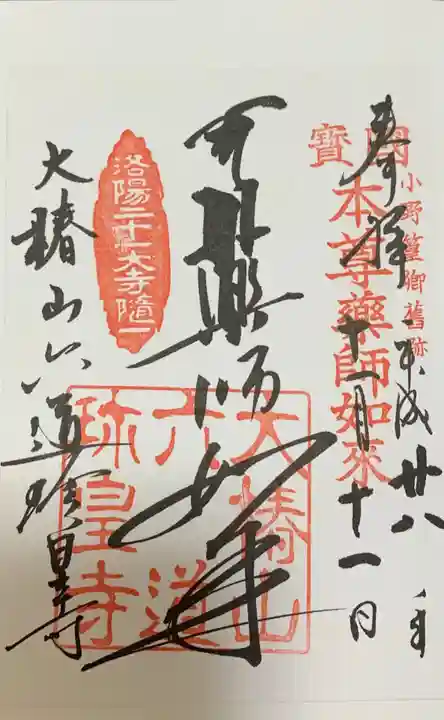 奉拝
平成廿八年
十一月十一日
小野篁卿舊跡
本尊藥師如來
薬師如来
洛陽二十一大寺随一
大椿山
六道
珎皇寺
大椿山六道珎皇寺